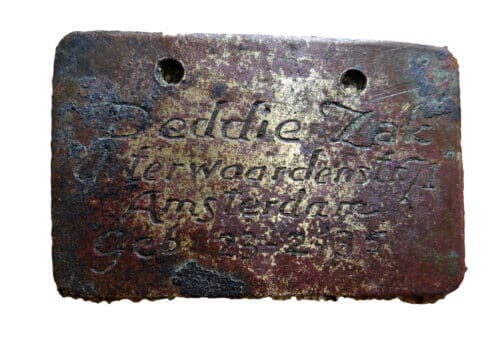 Deddie Zak
Uiterwaardenstr
Amsterdam
Geb. 23-2-'35